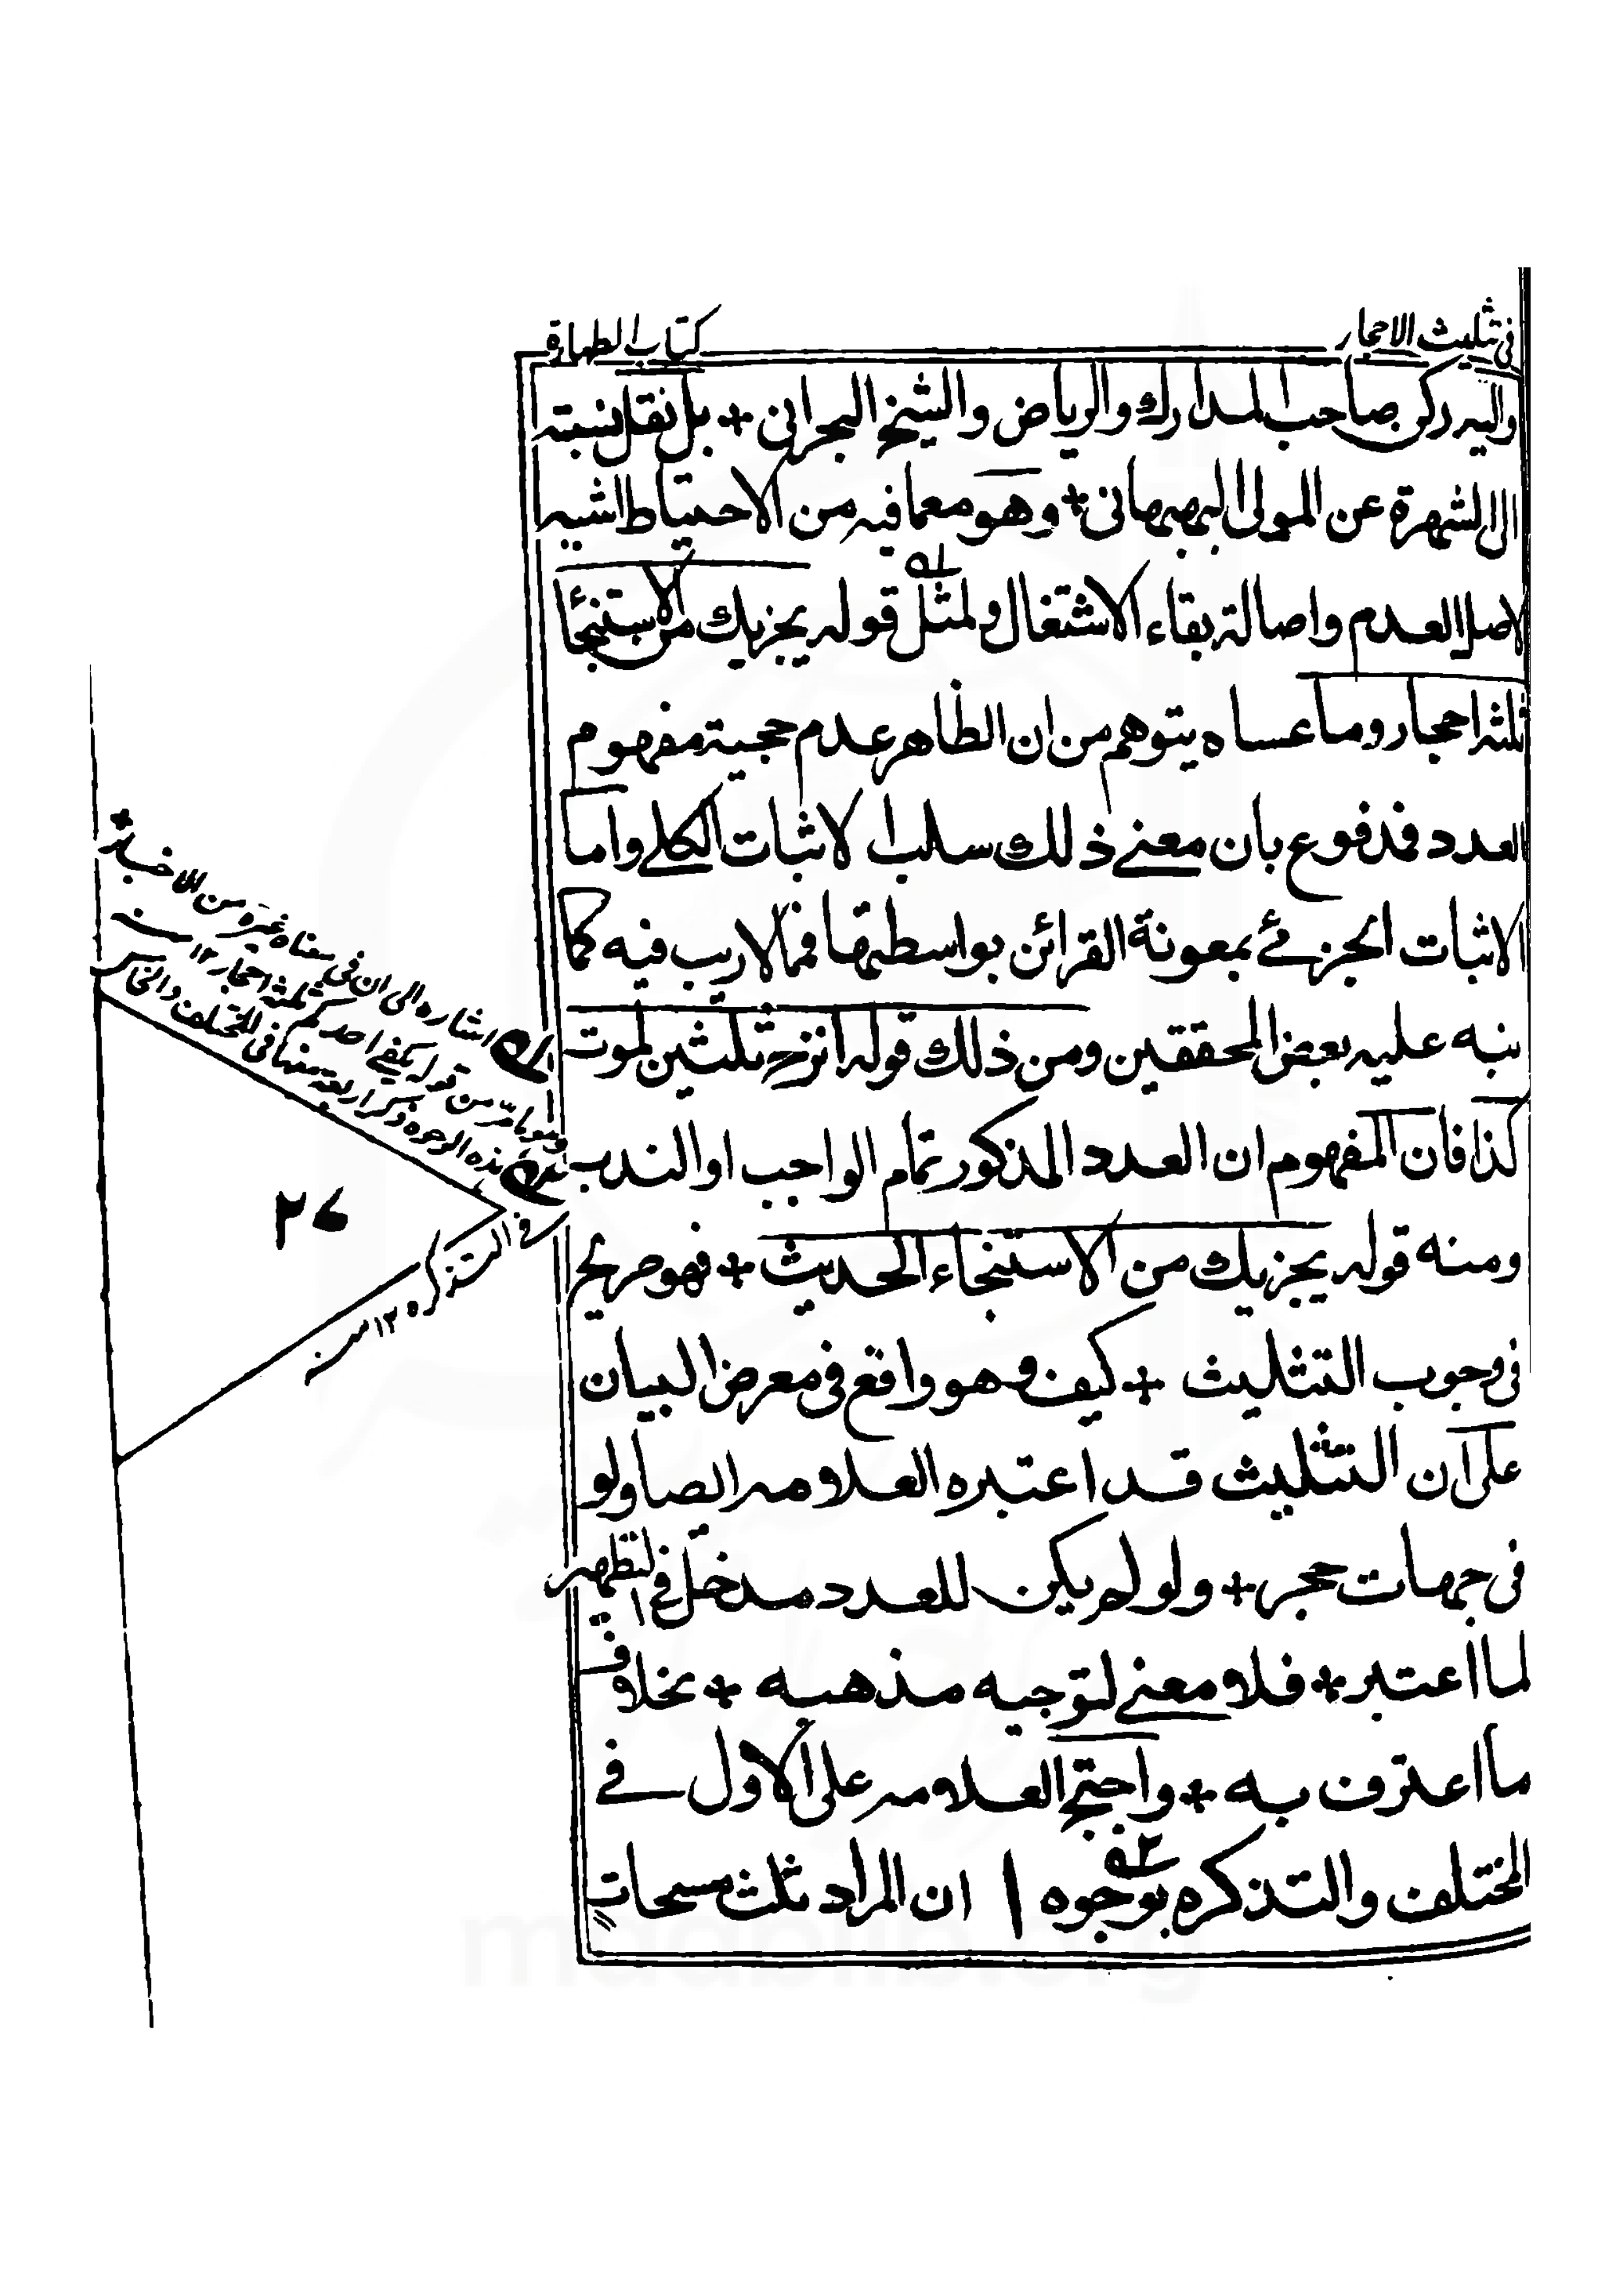 في تثليث الاحجار
كتاب الطهارة
واليه ركن صاحب المدارك والرياض والشيخ البحراني + بل نقل نسبته
الى الشهرة عن المولى البهبهاني + وهو مع ما فيه من الاحتياط اشبه
لاصل العدم واصالة بقاء الاشتغال ولمثل قوله يجزيك من الاستنجا
ثلثة احجار وما عساه يتوهم من ان الظاهر عدم حجية مفهوم
العدد فمدفوع بان معنے ذلك سلب الاثبات الكلے واما
الاثبات الجزئے بمعونة القرائن بواسطتها فما لا ريب فيه كما
نبه عليه بعض المحققين ومن ذلك قوله انزح ثلثين لموت
كذا فان المفهوم ان العدد المذكور تمام الواجب او الندب
ومنه قوله يجزيك من الاستنجاء الحديث + فهو صريح
في وجوب التثليث + كيف وهو واقع في معرض البيان
على ان التثليث قد اعتبره العلامه ايضا ولو
في جهات حجر + ولو لم يكن للعدد مدخل في التطهير
لما اعتبر + فلا معنے لتوجيه مذهبه + بخلاف
ما اعترف به + واحتج العلامه على الاول فے
المختلف والتذكره بوجوه ا ان المراد ثلث مسحات
اشاره الى ان في معناه غيره من الاخبار +
وهو ما مر من قوله يكفي احدكم ثلثة احجار ١٢ منه
هذه الوجوه ذكر اربعة منها في المختلف والخامس
في التذكره ١٢ منه
٢٧